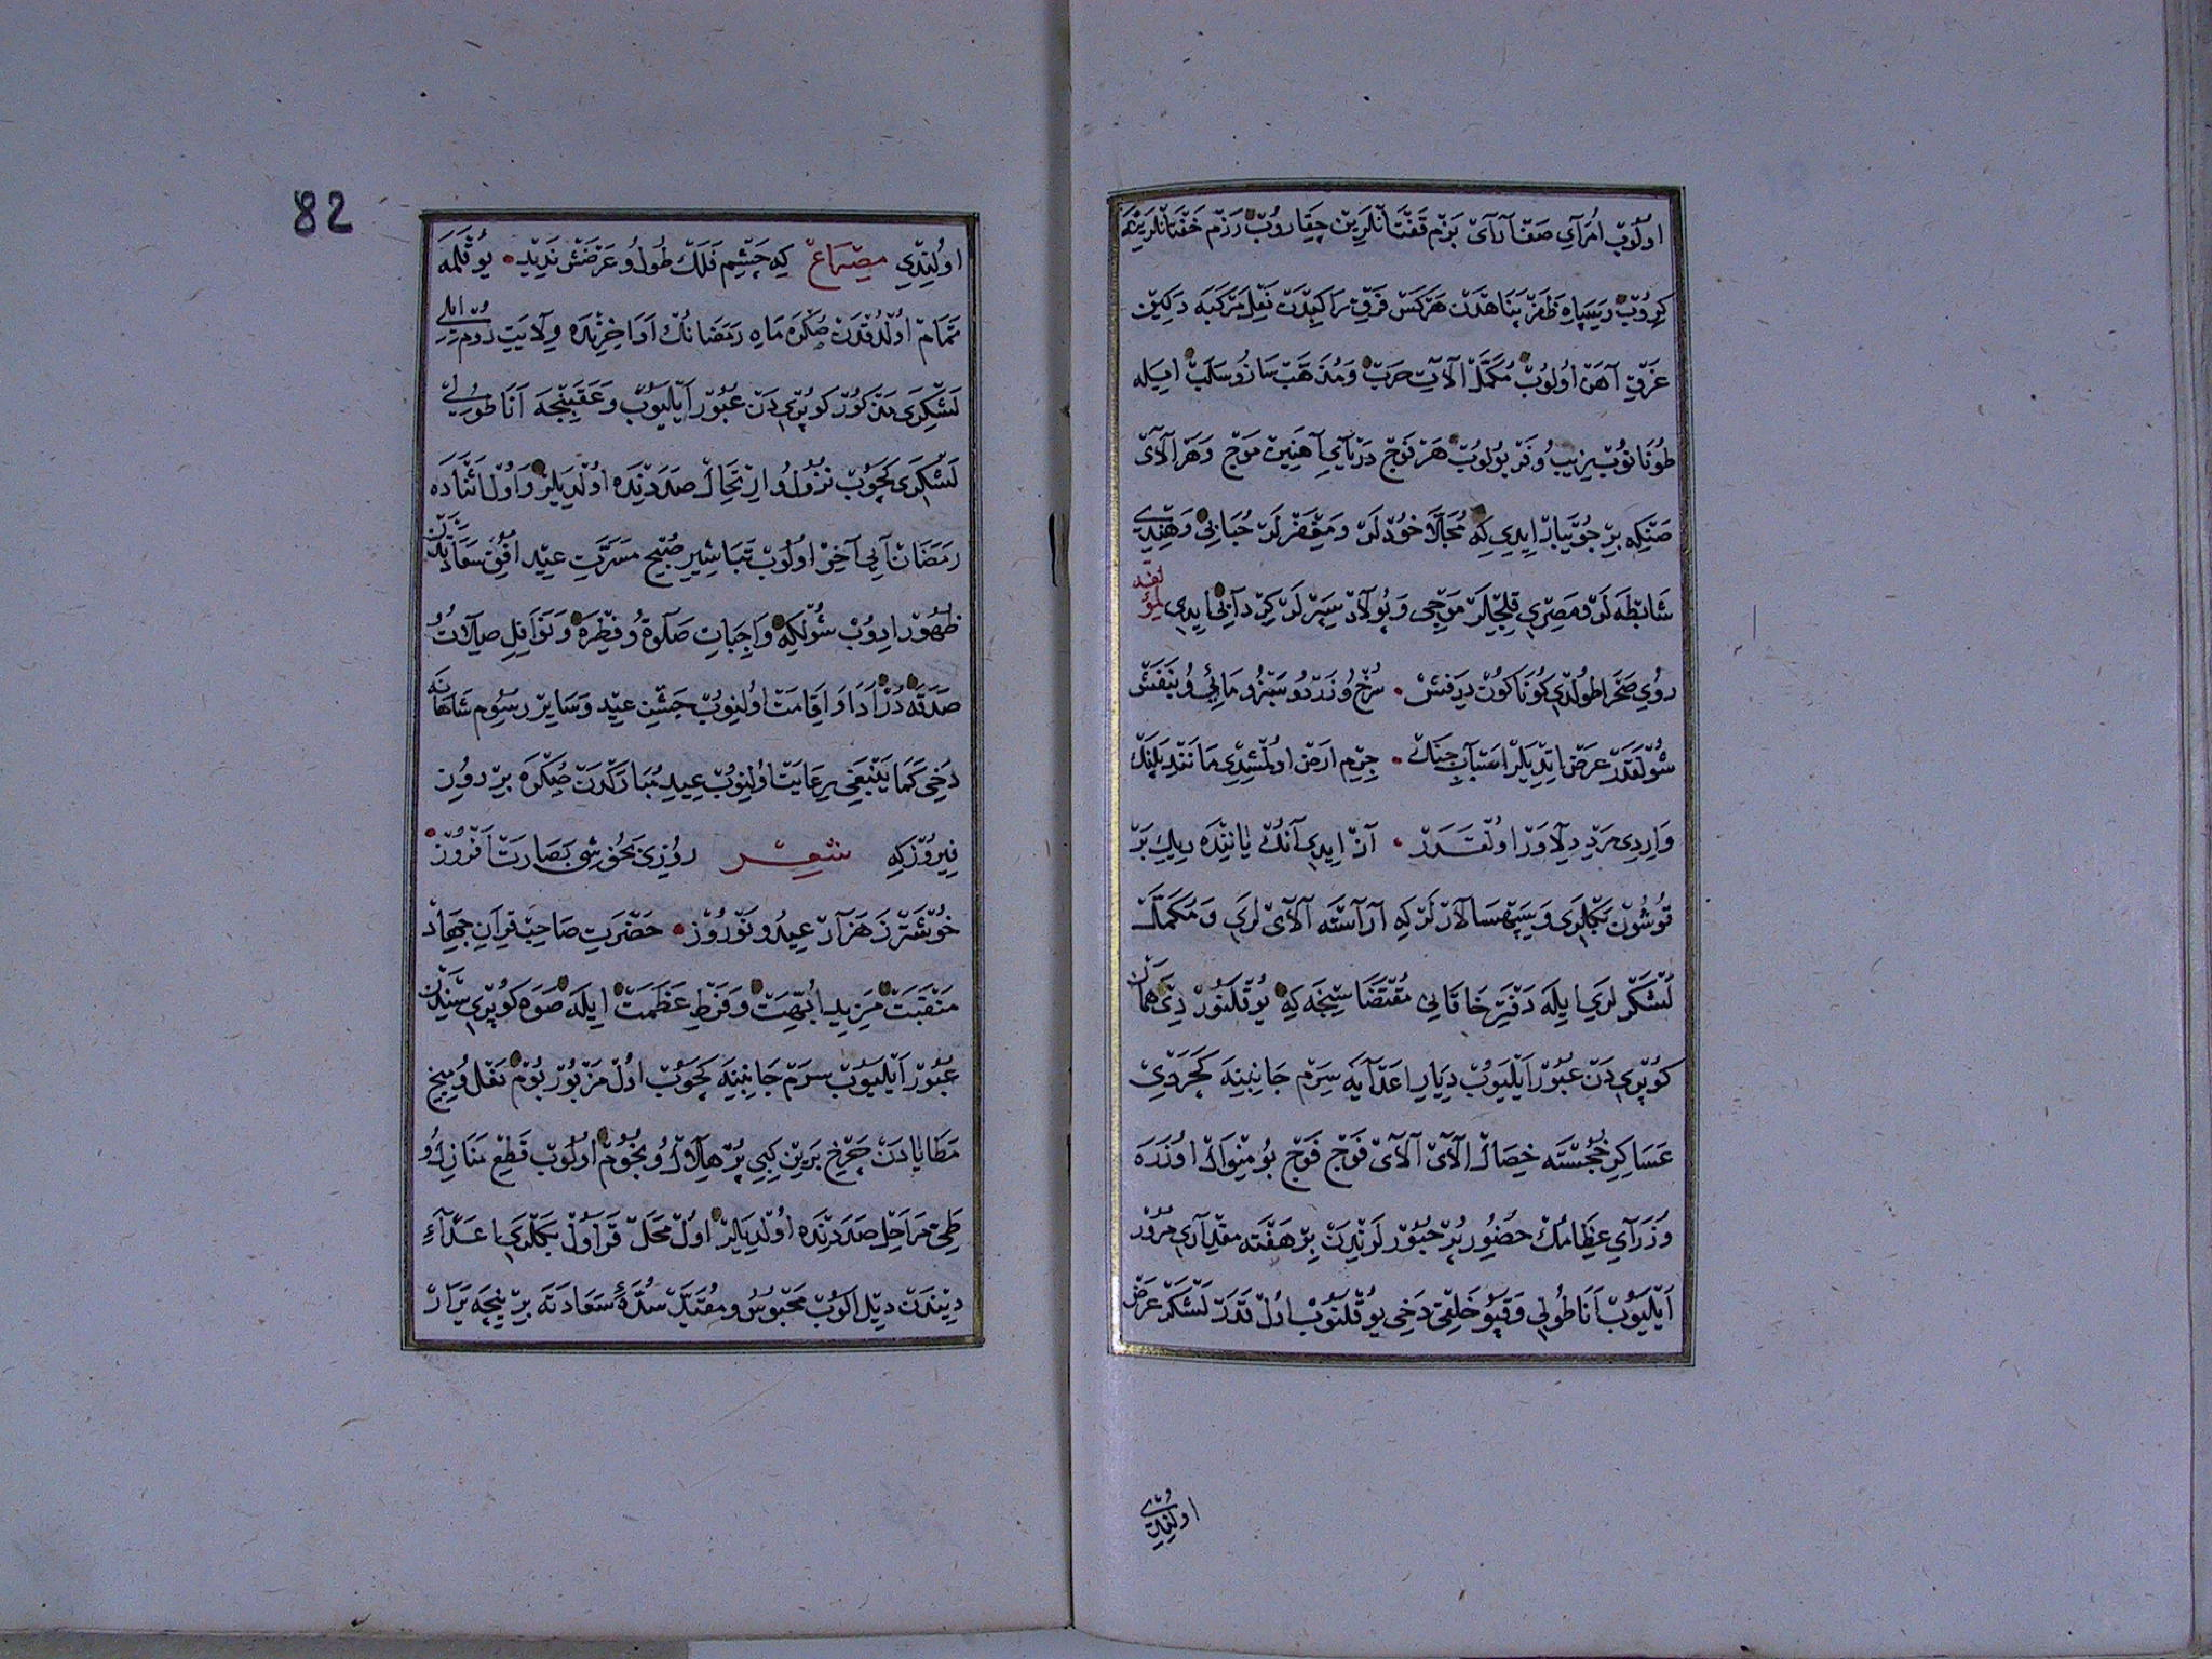 اولوب امرآي صف آرآى بزم قفتانلرين چيقاروب رزم خفتانلرينه
كروب و سپاه ظفر پناهدن هركس فرق راكبدن نعل مركبه دكين
غرق آهن اولوب مكمل آلات حرب و مذهب ساز و سلب ايله
طونانوب زيب و فر بولوب هر فوج درياى آهنين موج و هر آلاى
صنكه بر جويبار ايدى كه مجلا خودلر و مغفرلر حبابى و هندى
شابطه لر و مصرى قليجلر موجى و پولاد سپرلر كردآبى ايدى لمؤلفه
روى صحرا طولدى كوناكون درفش • سرخ و زرد و سبز و مائى و بنفش
شولقدر عرض ايتديلر اسباب جنك • جرم ارض اولمشدى مانند پلنك
واردى مرد دلاور اولقدر • آز ايدى آنك ياننده ريك بر
قوشون بكلرى و سپهسالارلر كه آرآسته آلآى لرى و مكمل
لشكرلرى ايله دفتر خاقانى مقتضاسنجه كه يوقلنور دى همان
كوپريدن عبور ايليوب ديار اعدآيه سرم جانبنه كچردى
عساكر خجسته خصال آلآى آلآى فوج فوج بو منوال اوزره
وزرآى عظامك حضور پر حبورلرندن بر هفته مقدآرى مرور
ايليوب اناطولى و قپو خلقى دخى يوقلنوب اول قدر لشكر عرض
اولندى
82
اولندى مصراع كه چشم فلك طول و عرضش نديد • يوقلمه
تمام اولدقدن صكره ماه رمضانك اواخرنده ولايت روم ايلى
لشكرى مذكور كوپريدن عبور ايليوب و عقبنجه اناطولى
لشكرى كچوب نزول و ارتحال صددنده اولديلر و اول اثناده
رمضان آيى آخر اولوب تباشير صبح مسرت عيد افق سعادتدن
ظهور ايدوب شولكه واجبات صلوة و فطره و نوافل صلات و
صدقه در ادا و اقامت اولنوب جشن عيد و ساير رسوم شاهانه
دخى كما ينبغى رعايت اولنوب عيد مباركدن صكره بر روز
نيروز كه شعر روزى بخوشى بصارت افروز •
خوشتر ز هزار عيد و نوروز • حضرت صاحب قران جهاد
منقبت مزيد ابهت و فرط عظمت ايله صوه كوپريسندن
عبور ايليوب سرم جانبنه كچوب اول مزبور بوم نعل و ميخ
مطايادن چرخ برين كبى پر هلال و نجوم اولوب قطع منازل و
طى مراحل صددنده اولديلر اول محل قراول بكلرى اعدآء
ديندن ديل الوب محبوس و مقبل سدهٔ سعادته بر نيجه يرار